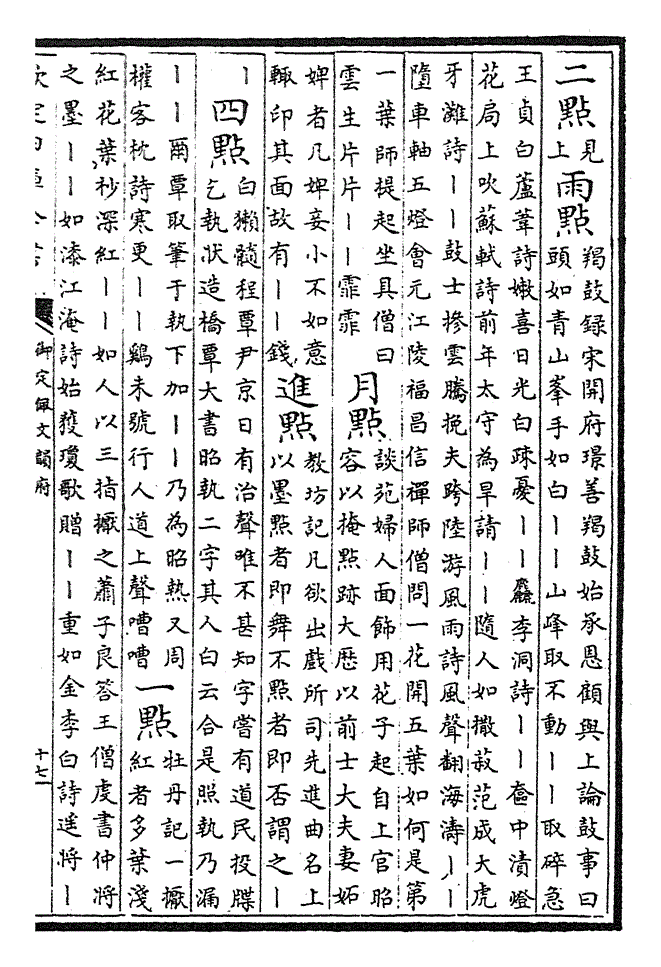 二點
見
上
雨點
羯鼓録宋開府璟善羯鼓始承恩顧與上論鼓事曰
頭如青山峯手如白丨丨山峰取不動丨丨取碎急
王貞白蘆葦詩嫩喜日光白疎憂丨丨麤李洞詩丨丨盦中漬燈
花局上吹蘇軾詩前年太守為旱請丨丨隨人如撒菽范成大虎
牙灘詩丨丨鼓士摻雲騰挽夫跨陸游風雨詩風聲翻海濤丨丨
墮車軸五燈會元江陵福昌信禪師僧問一花開五葉如何是第
一葉師禔起坐具僧曰
雲生片片丨丨霏霏
月點
談苑婦人面飾用花子起自上官昭
容以掩點跡大厯以前士大夫妻妬
婢者凡婢妾小不如意
輒印其面故有丨丨錢
進點
教坊記凡欲出戲所司先進曲名上
以墨點者即舞不點者即否謂之丨
丨
四點
白獺髓程覃尹京日有治聲唯不甚知字嘗有道民投牒
乞執状造橋覃大書昭執二字其人白云合是照執乃漏
丨丨爾覃取筆于執下加丨丨乃為昭熱又周
權客枕詩寒更丨丨鷄未號行人道上聲嘈嘈
一點
牡丹記一擫
紅者多葉淺
紅花葉杪深紅丨丨如人以三指擫之蕭子良答王僧虔書仲將
之墨丨丨如漆江淹詩始獲瓊歌贈丨丨重如金李白詩遥將丨
欽定四庫全書
御定佩文韻府
十七